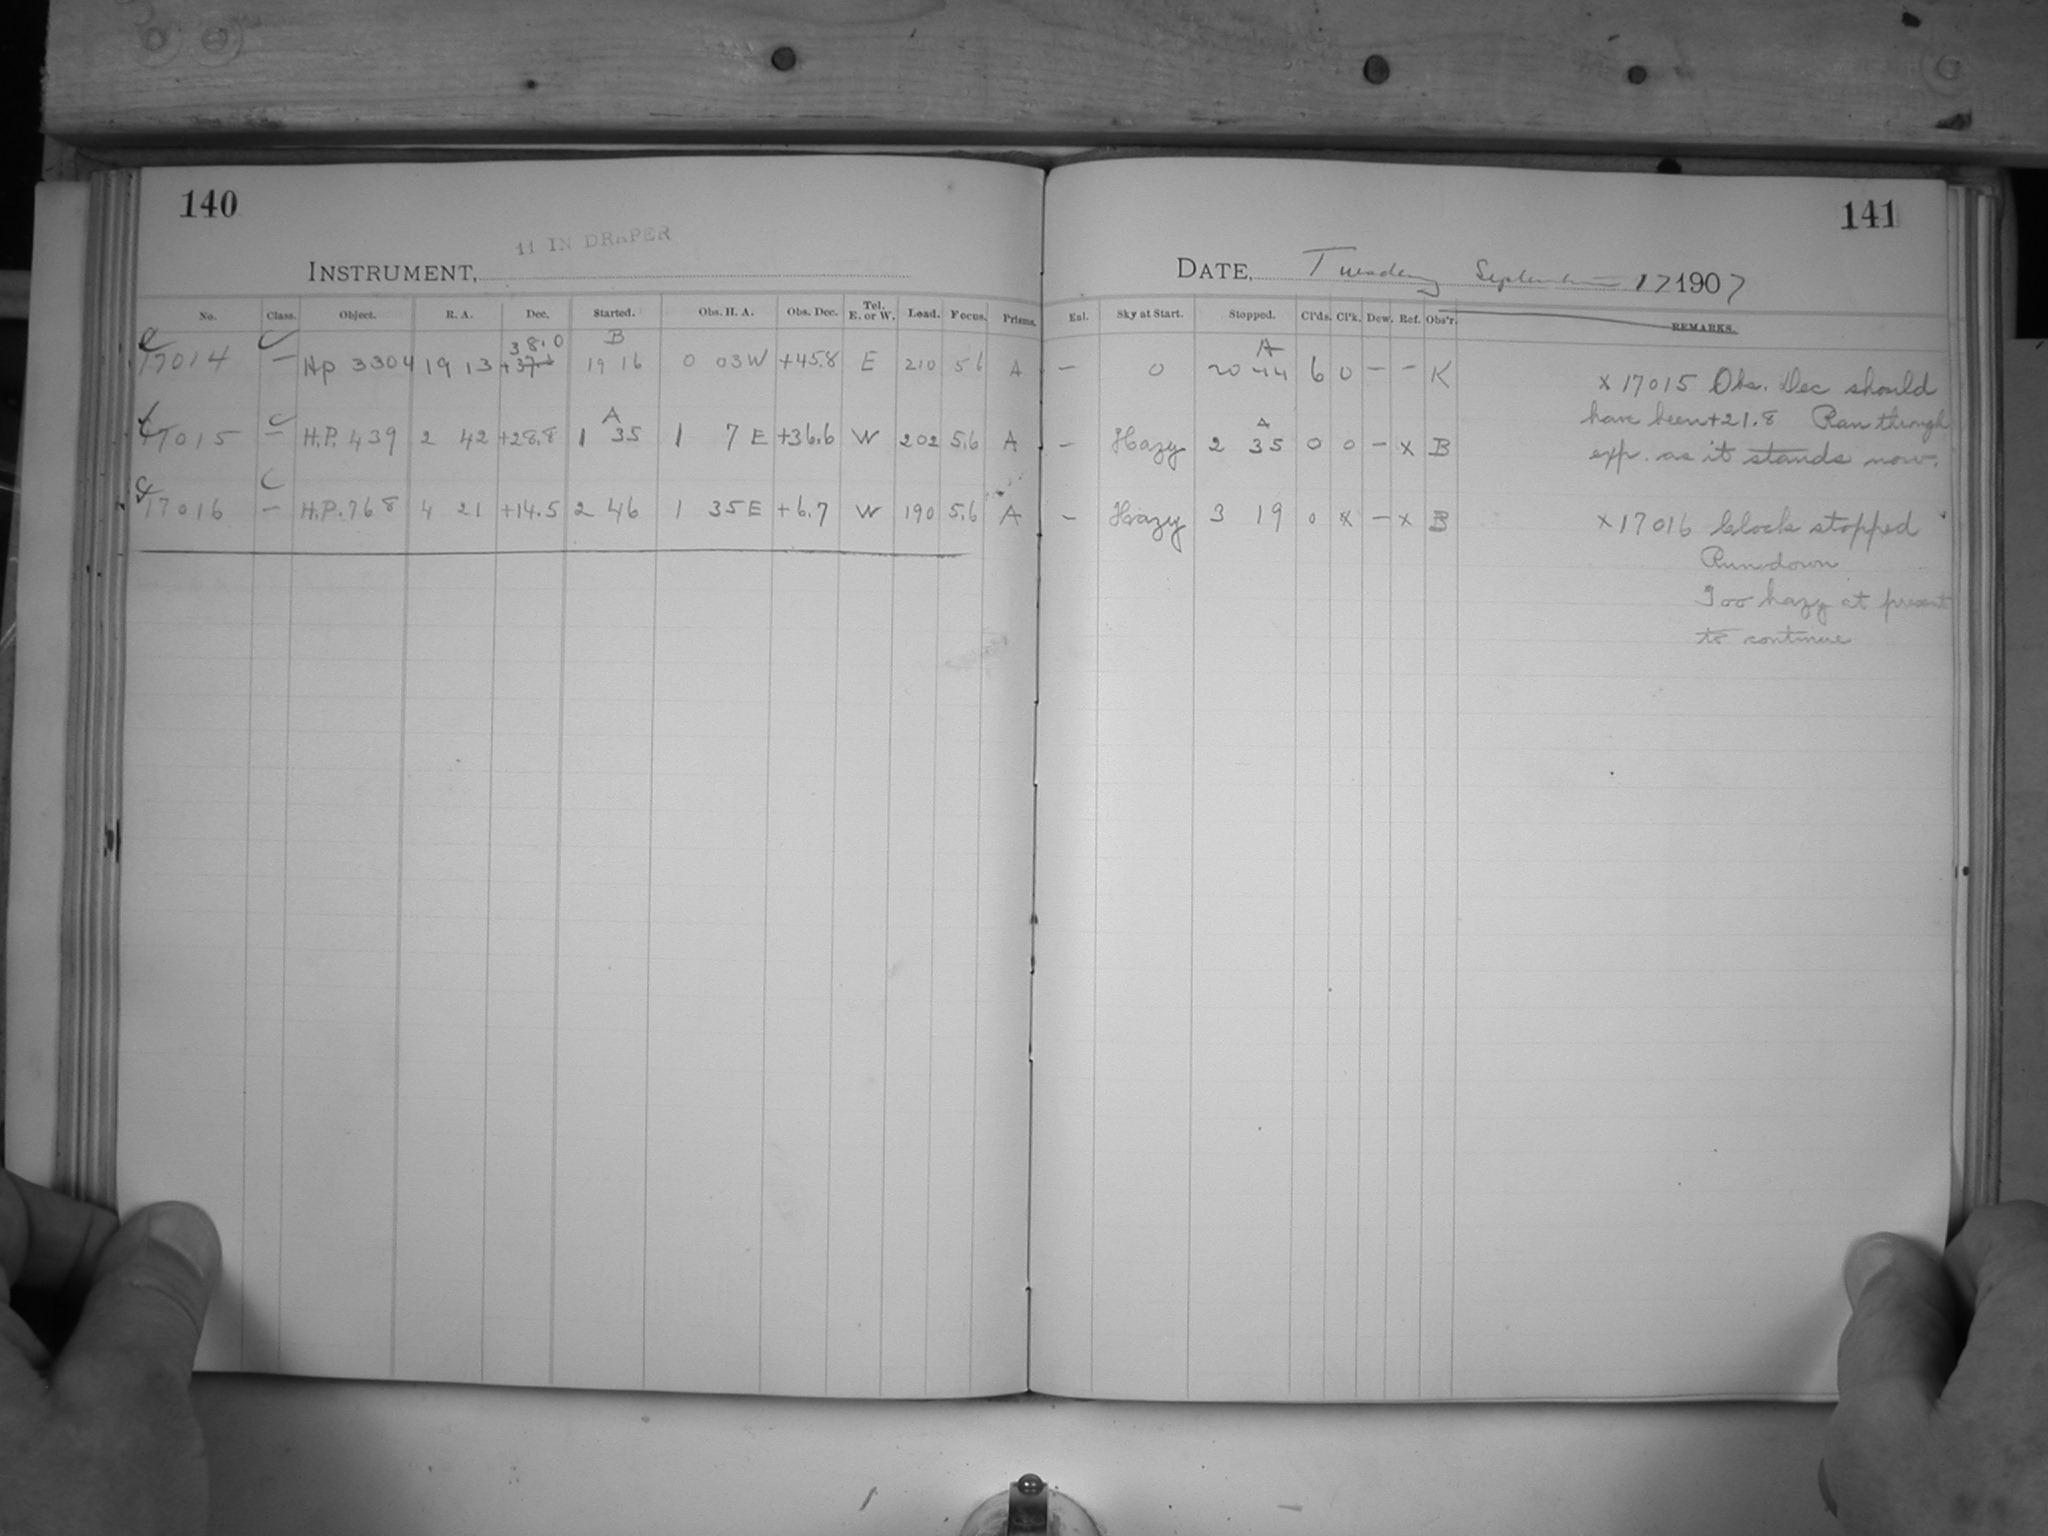 140
11 IN DRAPER
INSTRUMENT,
No. Class. Object. R. A. Dec. Started. Obs. H. A. Obs. Dec. Tel. E. or W. Load. Focus. Prisms.
C C 38.0 B
17014 — Hp 3304 19 13 19 16 0 03W +45.8 E 210 56 A
C A
17015 — H.P. 439 2 42 +28.8 1 35 1 7 E +36.6 W 202 5.6 A
C C
17016 — H.P. 768 4 21 +14.5 2 46 1 35 E +6.7 W 190 5.6 A
141
DATE, Tuesday September 17 1907
Enl. Sky at Start. Stopped. Cl'ds. Cl'k. Dew. Ref. Obs'r. REMARKS.
A
— 0 20 44 6 0 — — K
A
— Hazy 2 35 0 0 — x B
— Hazy 3 19 0 x — x B
x 17015 Obs. Dec should
have been +21.8 Ran through
exp. as it stands now.
x 17016 Clock stopped
Run down
Too hazy at present
to continue